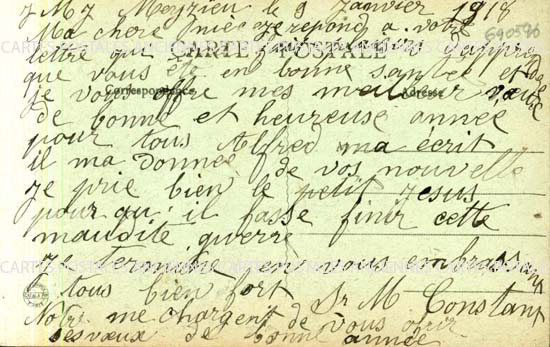 J M J Meyzieu le 9 Janvier 1918
690586
Ma chere niece je repond a votre
lettre qui
CARTE POSTALE
que vous ete en bonne santee et
je vous offre mes meilleur vœux
Correspondance
Adresse
de bonne et heureuse année
pour tous Alfred ma écrit
il ma donnee de vos nouvelle
je prie bien le petit Jesus
pour qu'il fasse finir cette
maudite guerre
je termine en vous embrassant
tous bien fort Sr M Constant
me chargent de vous ofrir
ses vœux de bonne année